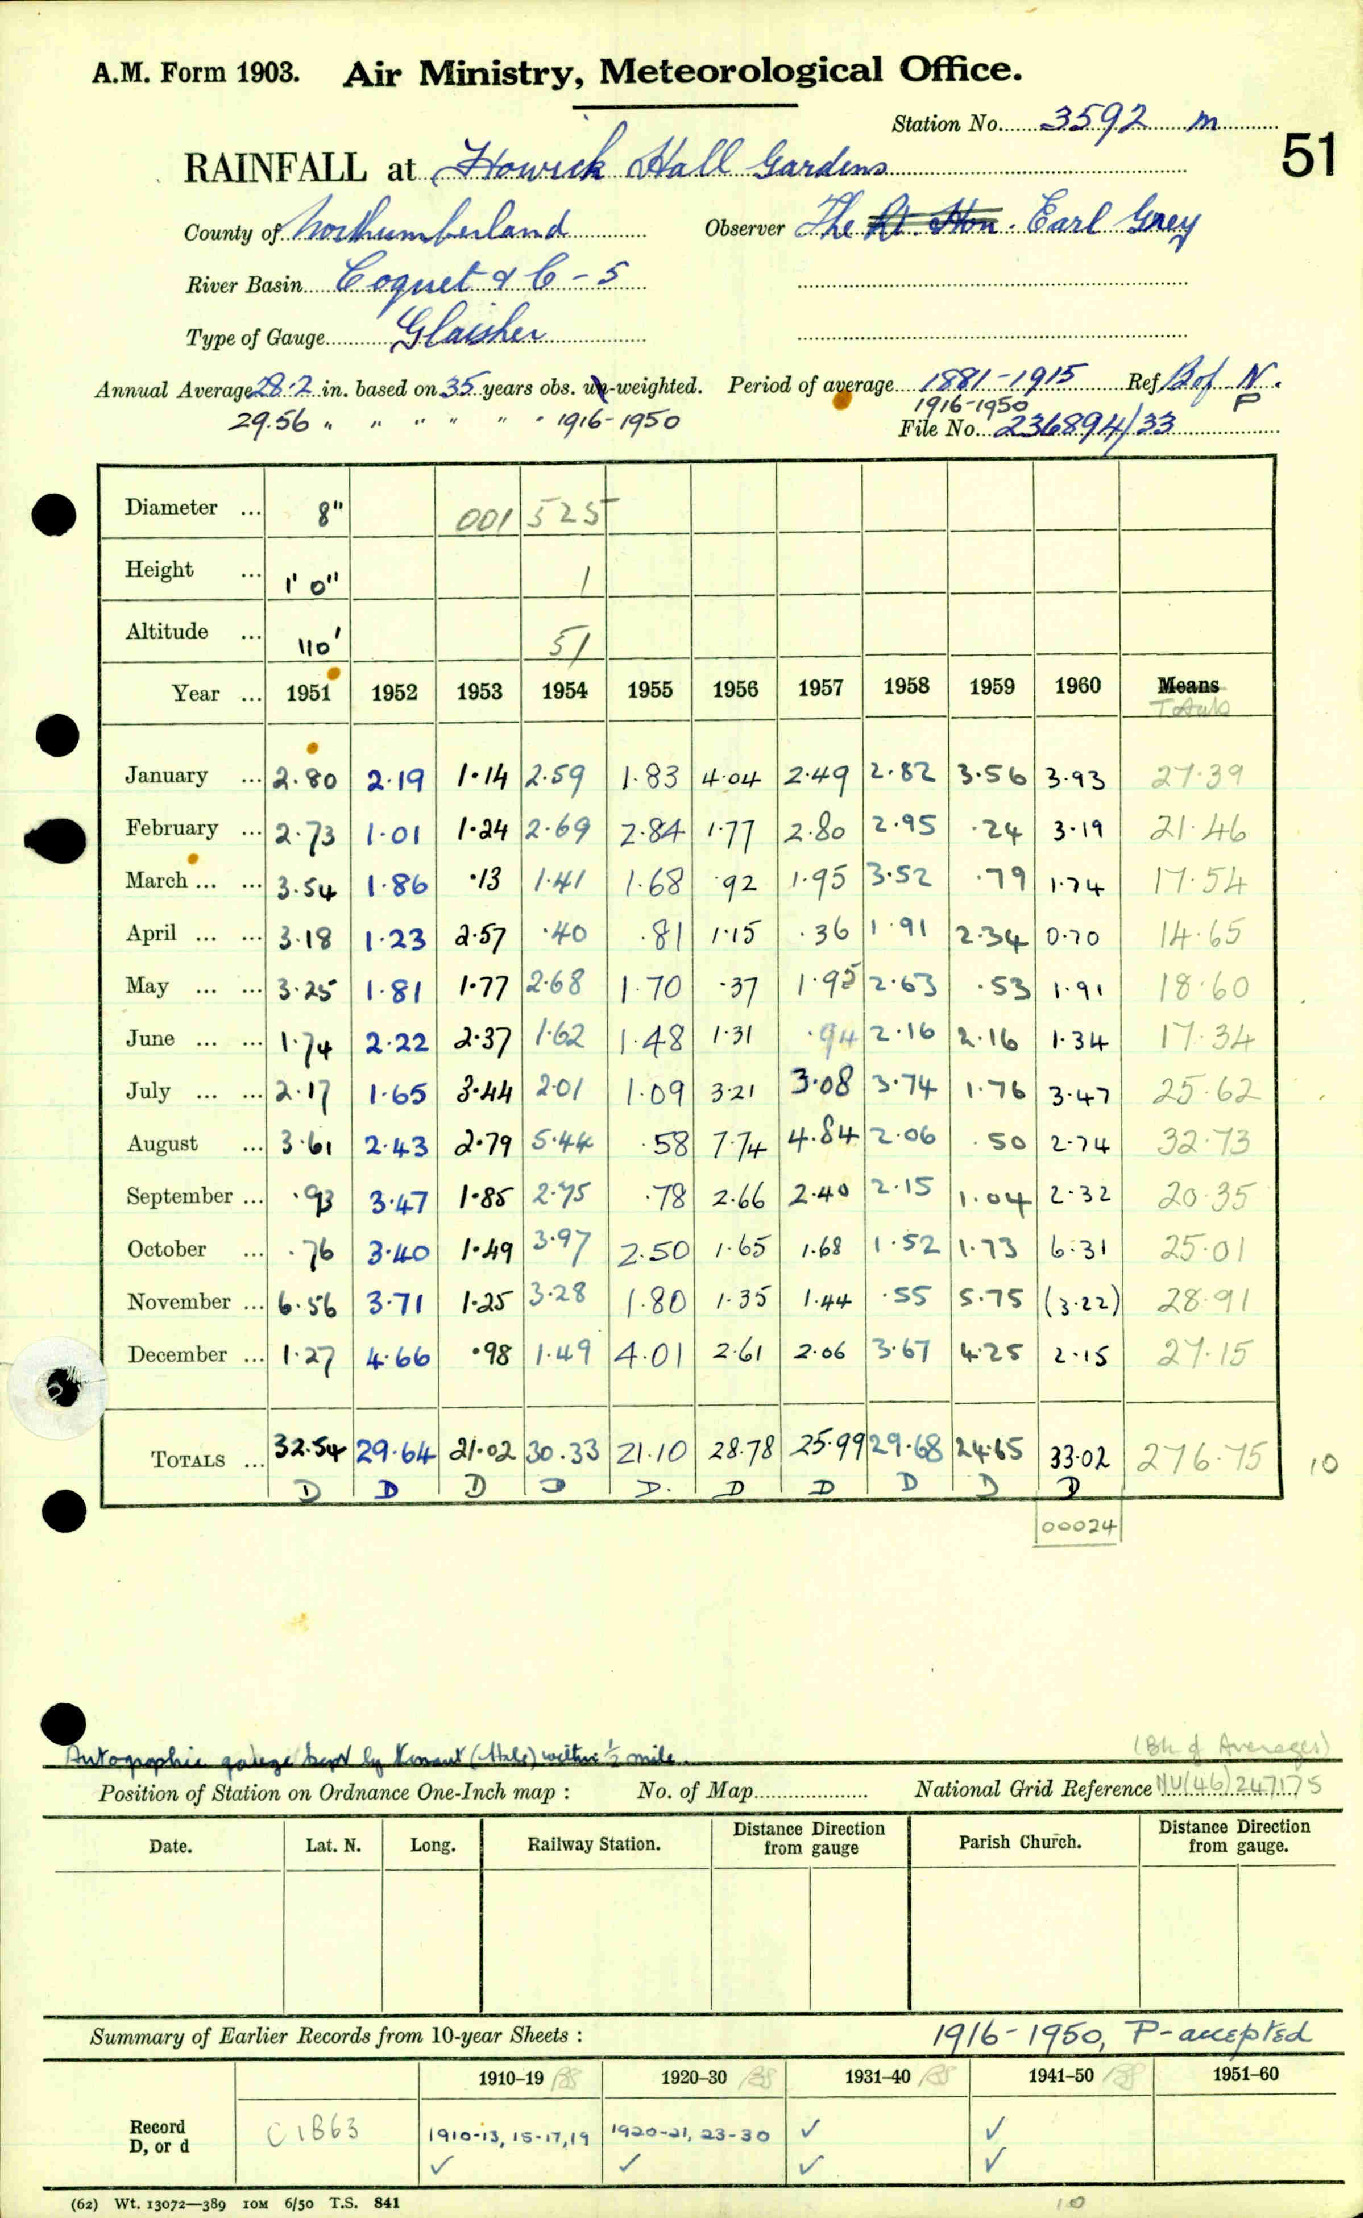 A.M. Form 1903. Air Ministry, Meteorological Office.
Station No. 3592 m
51
RAINFALL at Howick Hall Gardens
County of Northumberland Observer The Rt. Hon. Earl Grey
River Basin Coquet & C - 5
Type of Gauge Glaisher
Annual Average 28.2 in. based on 35 years obs. un-weighted. Period of average 1881-1915 Ref. B of N.
29.56 " " " " " " 1916-1950 1916-1950 P
File No. 236894/33
Diameter ... 8" 001 525
Height ... 1' 0" 1
Altitude ... 110' 51
Year ... 1951 1952 1953 1954 1955 1956 1957 1958 1959 1960 Means
Totals
January ... 2.80 2.19 1.14 2.59 1.83 4.04 2.49 2.82 3.56 3.93 27.39
February ... 2.73 1.01 1.24 2.69 2.84 1.77 2.80 2.95 .24 3.19 21.46
March ... ... 3.54 1.86 .13 1.41 1.68 .92 1.95 3.52 .79 1.74 17.54
April ... ... 3.18 1.23 2.57 .40 .81 1.15 .36 1.91 2.34 0.70 14.65
May ... ... 3.25 1.81 1.77 2.68 1.70 .37 1.95 2.63 .53 1.91 18.60
June ... ... 1.74 2.22 2.37 1.62 1.48 1.31 .94 2.16 2.16 1.34 17.34
July ... ... 2.17 1.65 3.44 2.01 1.09 3.21 3.08 3.74 1.76 3.47 25.62
August ... 3.61 2.43 2.79 5.44 .58 7.74 4.84 2.06 .50 2.74 32.73
September ... .93 3.47 1.85 2.75 .78 2.66 2.40 2.15 1.04 2.32 20.35
October ... .76 3.40 1.49 3.97 2.50 1.65 1.68 1.52 1.73 6.31 25.01
November ... 6.56 3.71 1.25 3.28 1.80 1.35 1.44 .55 5.75 (3.22) 28.91
December ... 1.27 4.66 .98 1.49 4.01 2.61 2.06 3.67 4.25 2.15 27.15
TOTALS ... 32.54 29.64 21.02 30.33 21.10 28.78 25.99 29.68 24.65 33.02 276.75 10
D D D D D. D D D D D
00024
Autographic gauge kept by (Hole) within ½ mile.
(Bk of Averages)
Position of Station on Ordnance One-Inch map : No. of Map National Grid Reference NU(46)247175
Date. Lat. N. Long. Railway Station. Distance from gauge Direction Parish Church. Distance from gauge. Direction
Summary of Earlier Records from 10-year Sheets : 1916-1950, P-accepted
1910-19 1920-30 1931-40 1941-50 1951-60
Record D, or d C 1863 1910-13, 15-17, 19 1920-21, 23-30 ✓ ✓
✓ ✓ ✓ ✓
(62) Wt. 13072—389 10M 6/50 T.S. 841
10